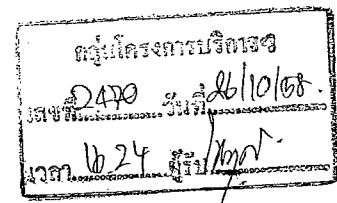 กลุ่มโครงการบริการฯ
เลขที่ 2470 วันที่ 26/10/58
เวลา 16.24 ผู้รับ